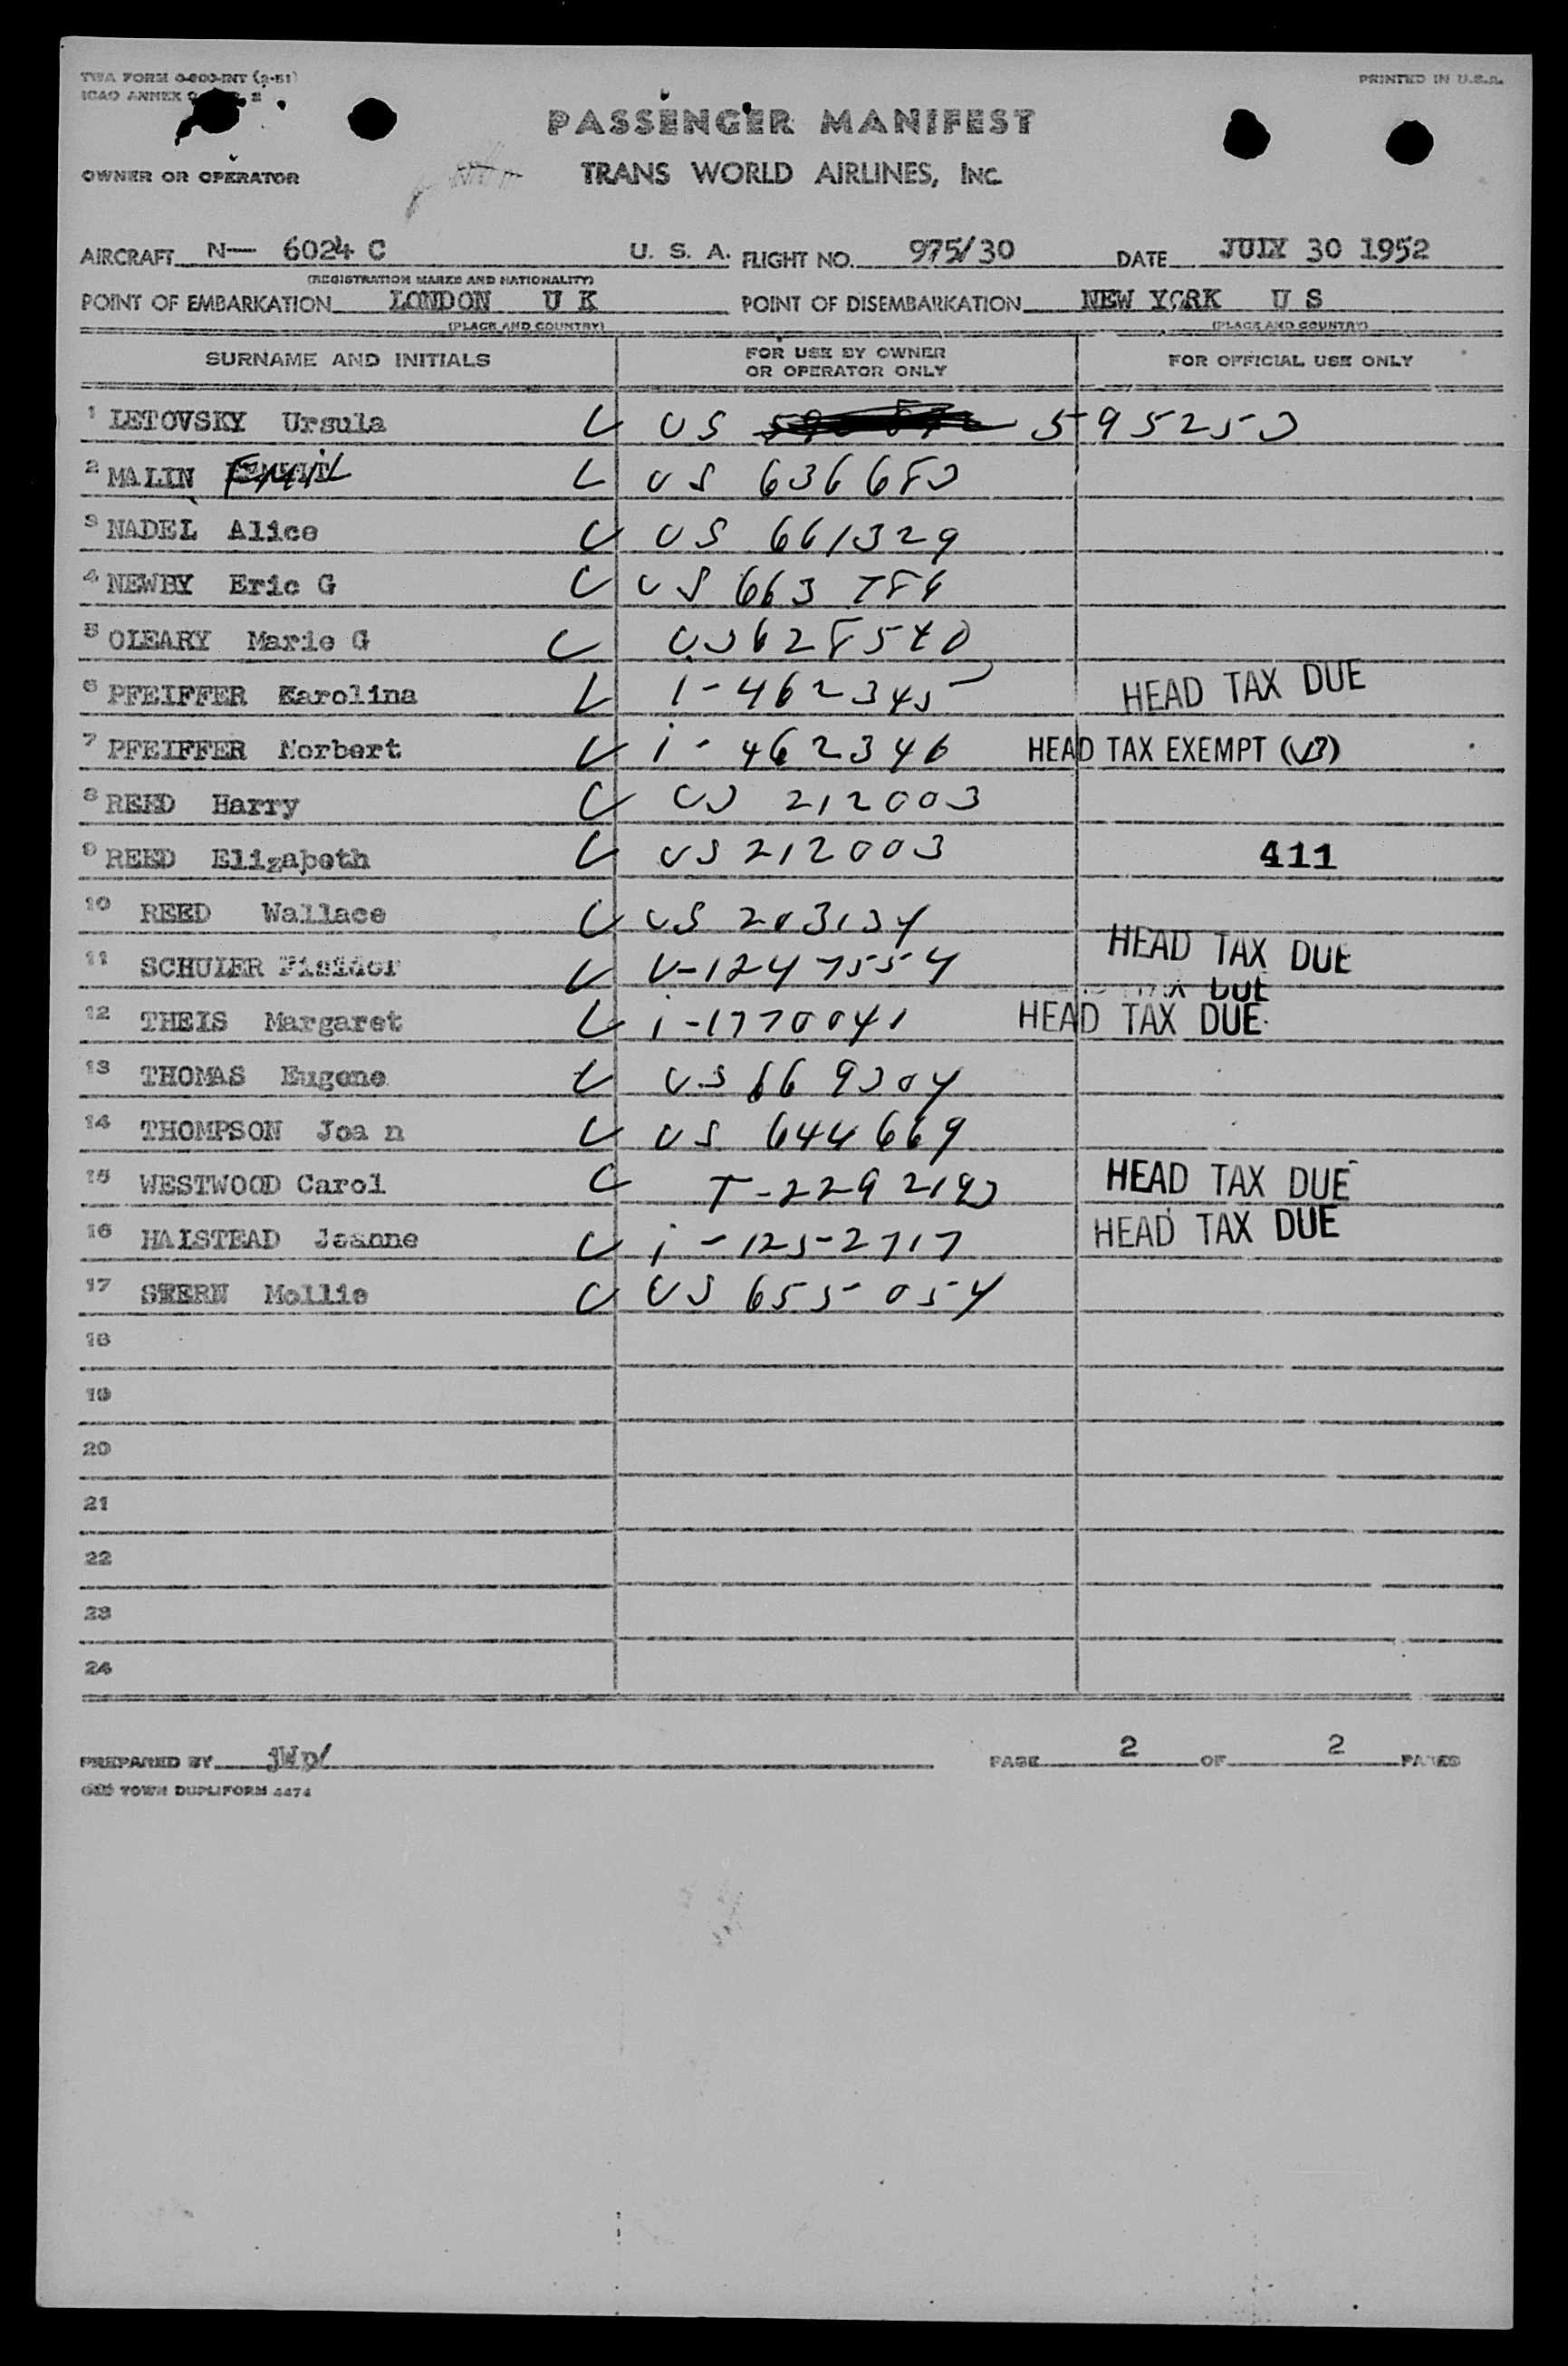 TWA FORM 0-800-INT (2-51)
PRINTED IN U.S.A.
ICAO ANNEX
PASSENGER MANIFEST
OWNER OR OPERATOR
TRANS WORLD AIRLINES, INC.
AIRCRAFT N— 6024 C U. S. A. FLIGHT NO. 975/30 DATE JULY 30 1952
(REGISTRATION MARKS AND NATIONALITY)
POINT OF EMBARKATION LONDON U K POINT OF DISEMBARKATION NEW YORK U S
(PLACE AND COUNTRY) (PLACE AND COUNTRY)
SURNAME AND INITIALS FOR USE BY OWNER OR OPERATOR ONLY FOR OFFICIAL USE ONLY
1 LETOVSKY Ursula US 595253
2 MALIN Emil US 636683
3 NADEL Alice US 661329
4 NEWBY Eric G US 663 786
5 OLEARY Marie G US 628540
6 PFEIFFER Karolina I-462345 HEAD TAX DUE
7 PFEIFFER Norbert i-462346 HEAD TAX EXEMPT (V3)
8 REED Harry US 212003
9 REED Elizabeth US 212003 411
10 REED Wallace US 203134
11 SCHULER V-1247554 HEAD TAX DUE
DUE
12 THEIS Margaret i-1770041 HEAD TAX DUE
13 THOMAS Eugene US 669304
14 THOMPSON Joa n US 644669
15 WESTWOOD Carol T-2292193 HEAD TAX DUE
16 HALSTEAD Jeanne i-1252717 HEAD TAX DUE
17 STERN Mollie US 655054
18
19
20
21
22
23
24
PREPARED BY jWp/ PAGE 2 OF 2 PAGES
TOWN DUPLIFORM 4474